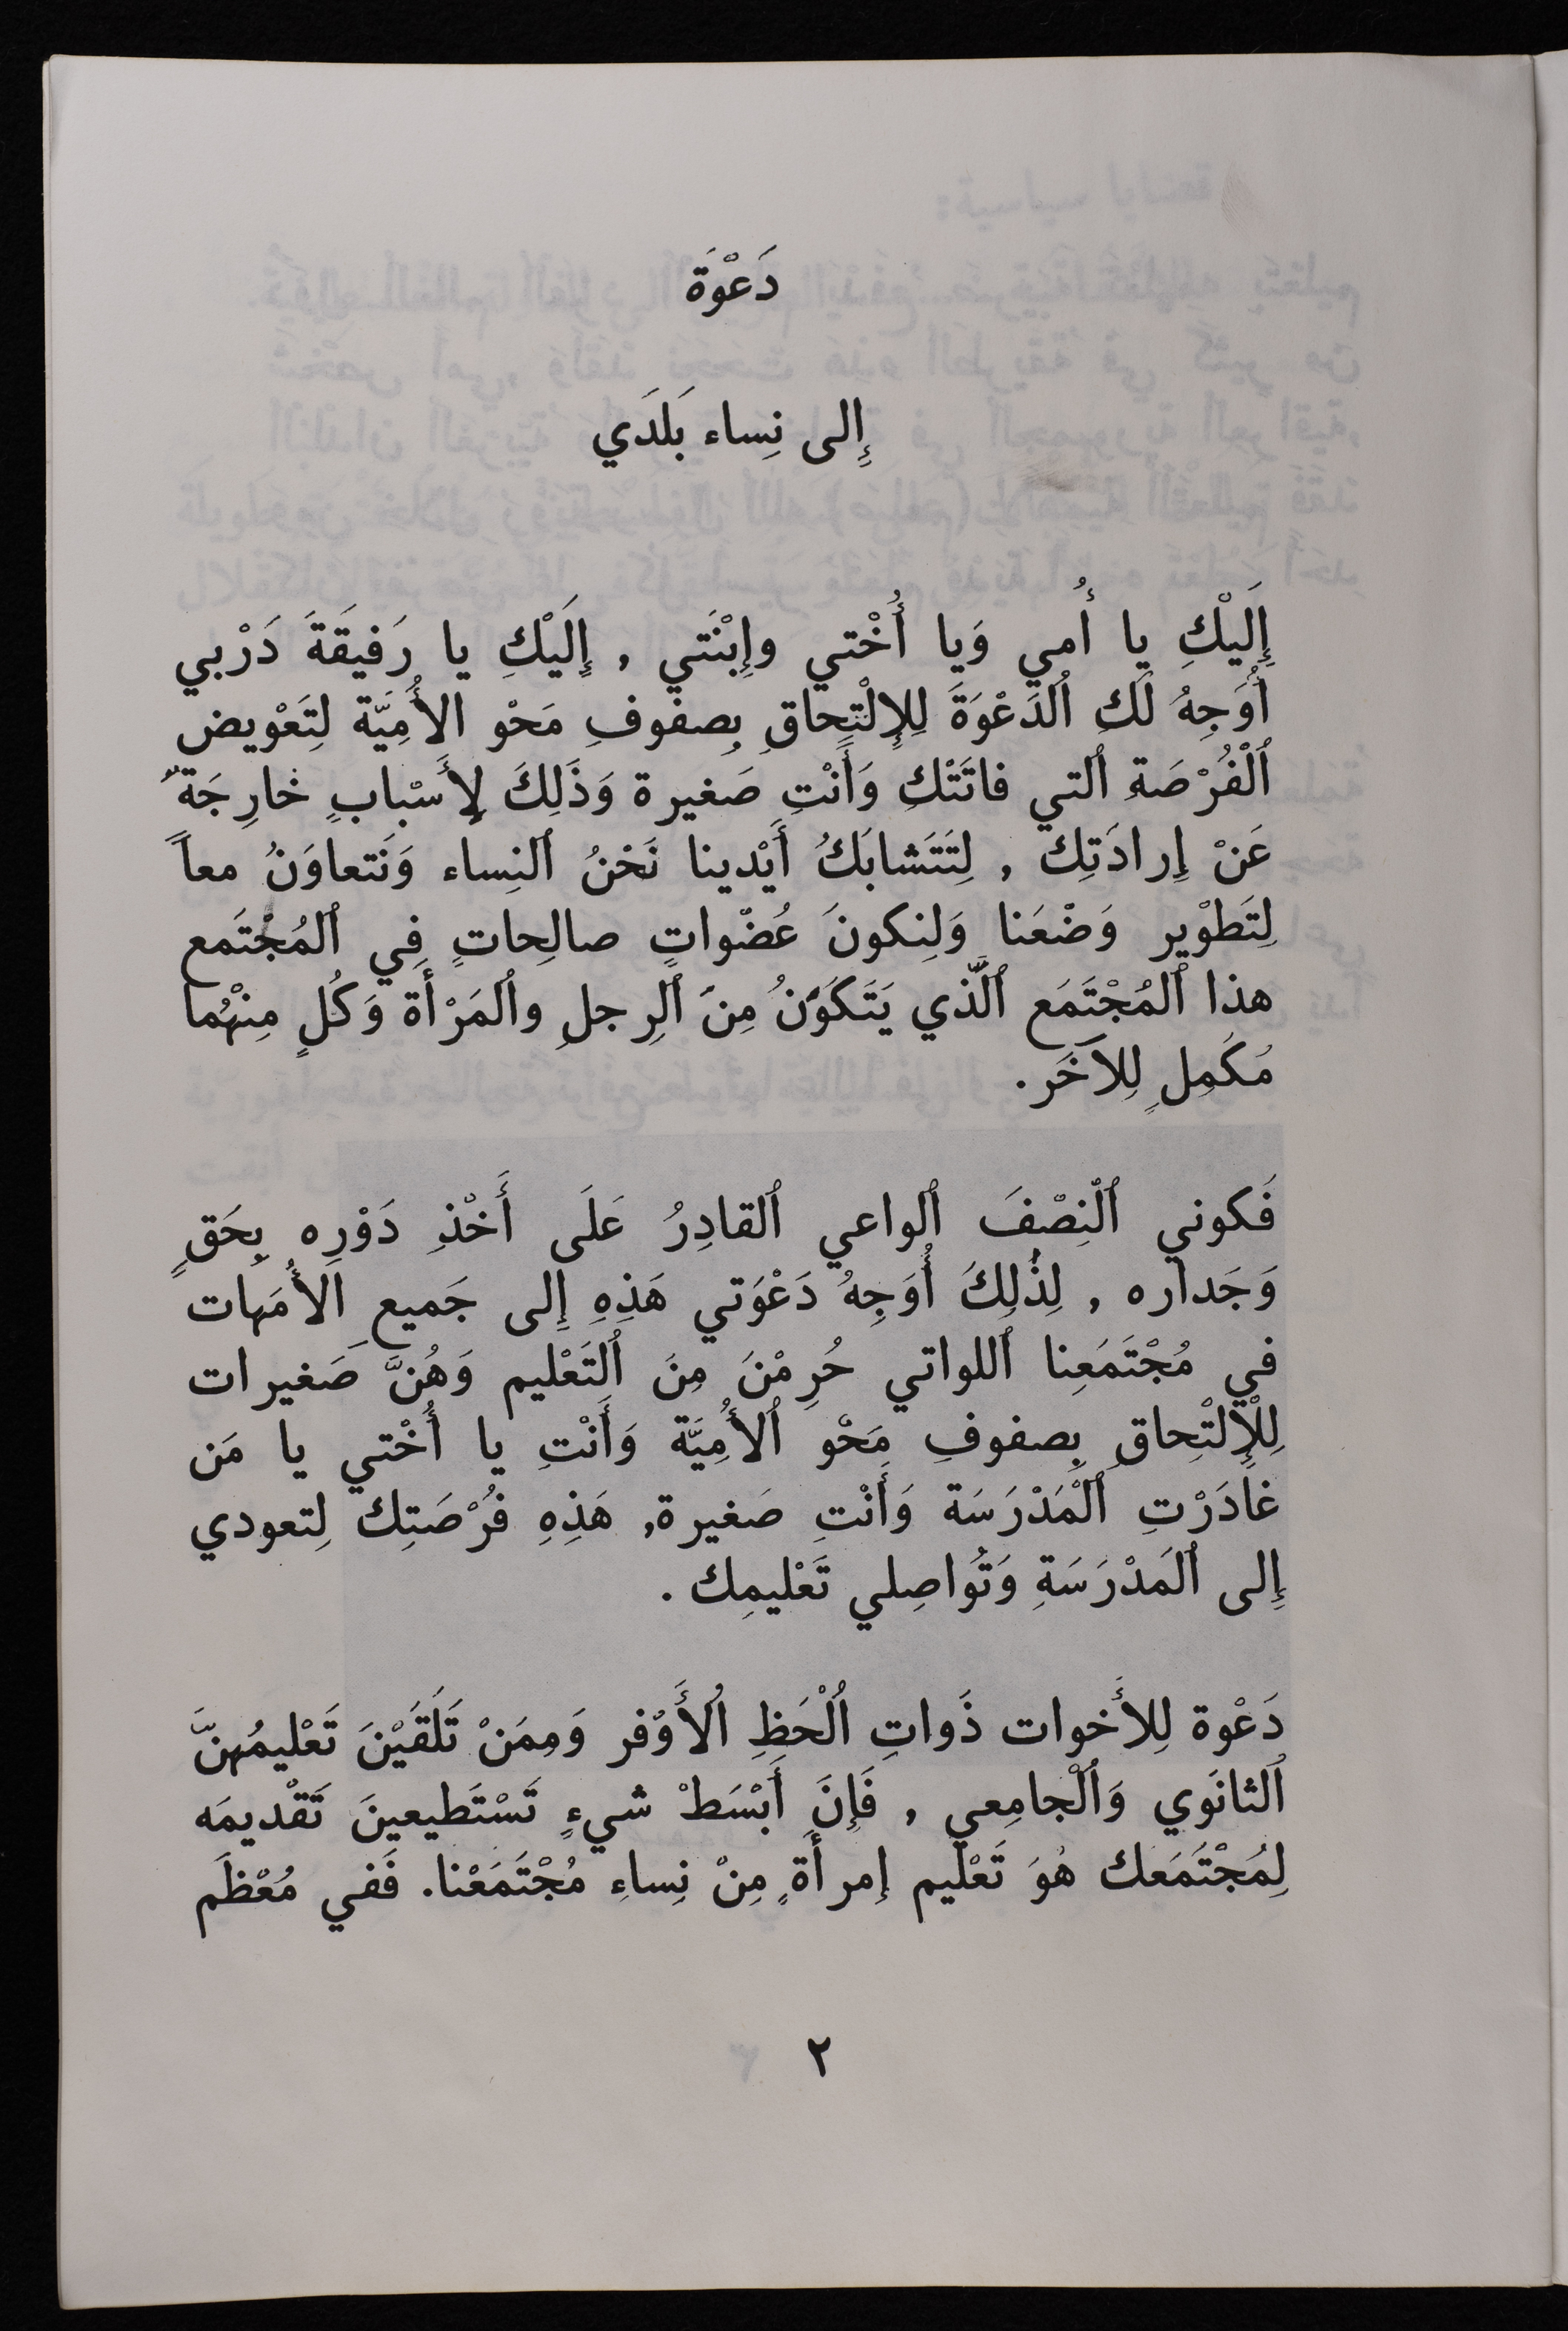 دَعْوَة
إِلى نِساء بَلَدَي
إِلَيْكِ يا أُمي وَيا أُخْتي وإِبْنَتي , إِلَيْكِ يا رَفيقَةَ دَرْبي
أُوَجِهُ لَكِ ٱلدَعْوَةَ لِلإِلْتِحاقِ بِصفوفِ مَحْو الأُمِيَّة لِتَعْويض
ٱلْفُرْصَةِ ٱلتي فاتَتْكِ وَأَنْتِ صَغيرة وَذَلِكَ لِأَسْبابٍ خارِجَةٌ
عَنْ إِرادَتِك , لِتَتَشابَكُ أَيْدينا نَحْنُ ٱلنِساء وَنَتعاوَنُ معاً
لِتَطوْير وَضْعَنا وَلِنكونَ عُضْواتٍ صالِحاتٍ فِي ٱلمُجْتَمع
هذا ٱلمُجْتَمَع ٱلَّذي يَتَكَوَّنُ مِنَ ٱلرِجلِ وٱلمَرْأَة وَكُلٍ مِنْهُما
مُكَمِلٍ لِلآخَر.
فَكوني ٱلْنِصْفَ ٱلواعي ٱلقادِرُ عَلَى أَخْذِ دَوْرِه بِحَقٍ
وَجَداره , لِذُلِكَ أُوَجِهُ دَعْوَتي هَذِهِ إِلى جَميع الأُمَهات
في مُجْتَمَعِنا ٱللواتي حُرِمْنَ مِنَ ٱلتَعْليم وَهُنَّ صَغيرات
لِلْإِلْتِحاقِ بِصفوفِ مَحْو ٱلأُمِيَّة وَأَنْتِ يا أُخْتي يا مَن
غادَرْتِ ٱلْمَدْرَسَة وَأَنْتِ صَغيرة, هَذِهِ فُرْصَتِك لِتعودي
إِلى ٱلمَدْرَسَةِ وَتُواصِلي تَعْليمِك .
دَعْوة لِلأَخوات ذَواتِ ٱلْحَظِ ٱلأَوْفر وَمِمَنْ تَلَقَيْنَ تَعْليمُهنَّ
ٱلثانَوي وَٱلْجامِعي , فَإِنَ أَبْسَطْ شيءٍ تَسْتَطيعينَ تَقْديمَه
لِمُجْتَمَعك هُوَ تَعْليم إمرأَةٍ مِنْ نِساءِ مُجْتَمَعْنا. فَفي مُعْظَم
٢